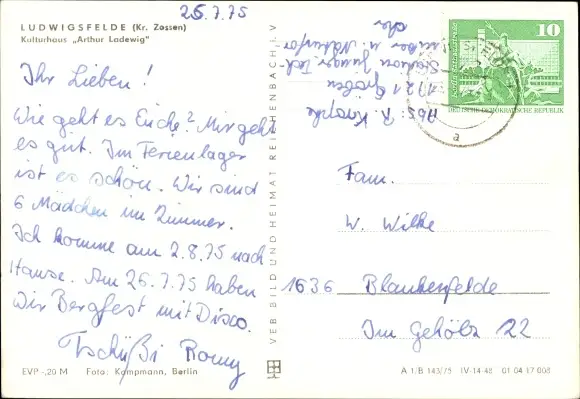 25.7.75
LUDWIGSFELDE (Kr. Zossen)
Kulturhaus „Arthur Ladewig"
Ihr Lieben!
Wie geht es Euch? Mir geht
es gut. Im Ferienlager
ist es schön. Wir sind
6 Mädchen im Zimmer.
Ich komme am 2.8.75 nach
Hause. Am 26.7.75 haben
wir Bergfest mit Disco.
Tschüßi Romy
EVP -,20 M Foto: Kampmann, Berlin
VEB BILD UND HEIMAT REICHENBACH i. V
Abs: R.
1721 Gröben
Station Junger Tech-
niker u. Naturfor
cher
10
DEUTSCHE DEMOKRATISCHE REPUBLIK
a
Fam.
W. Wilke
1636 Blankenfelde
Im Gehölz 22
A 1/B 143/75 IV-14-48 01 04 17 008